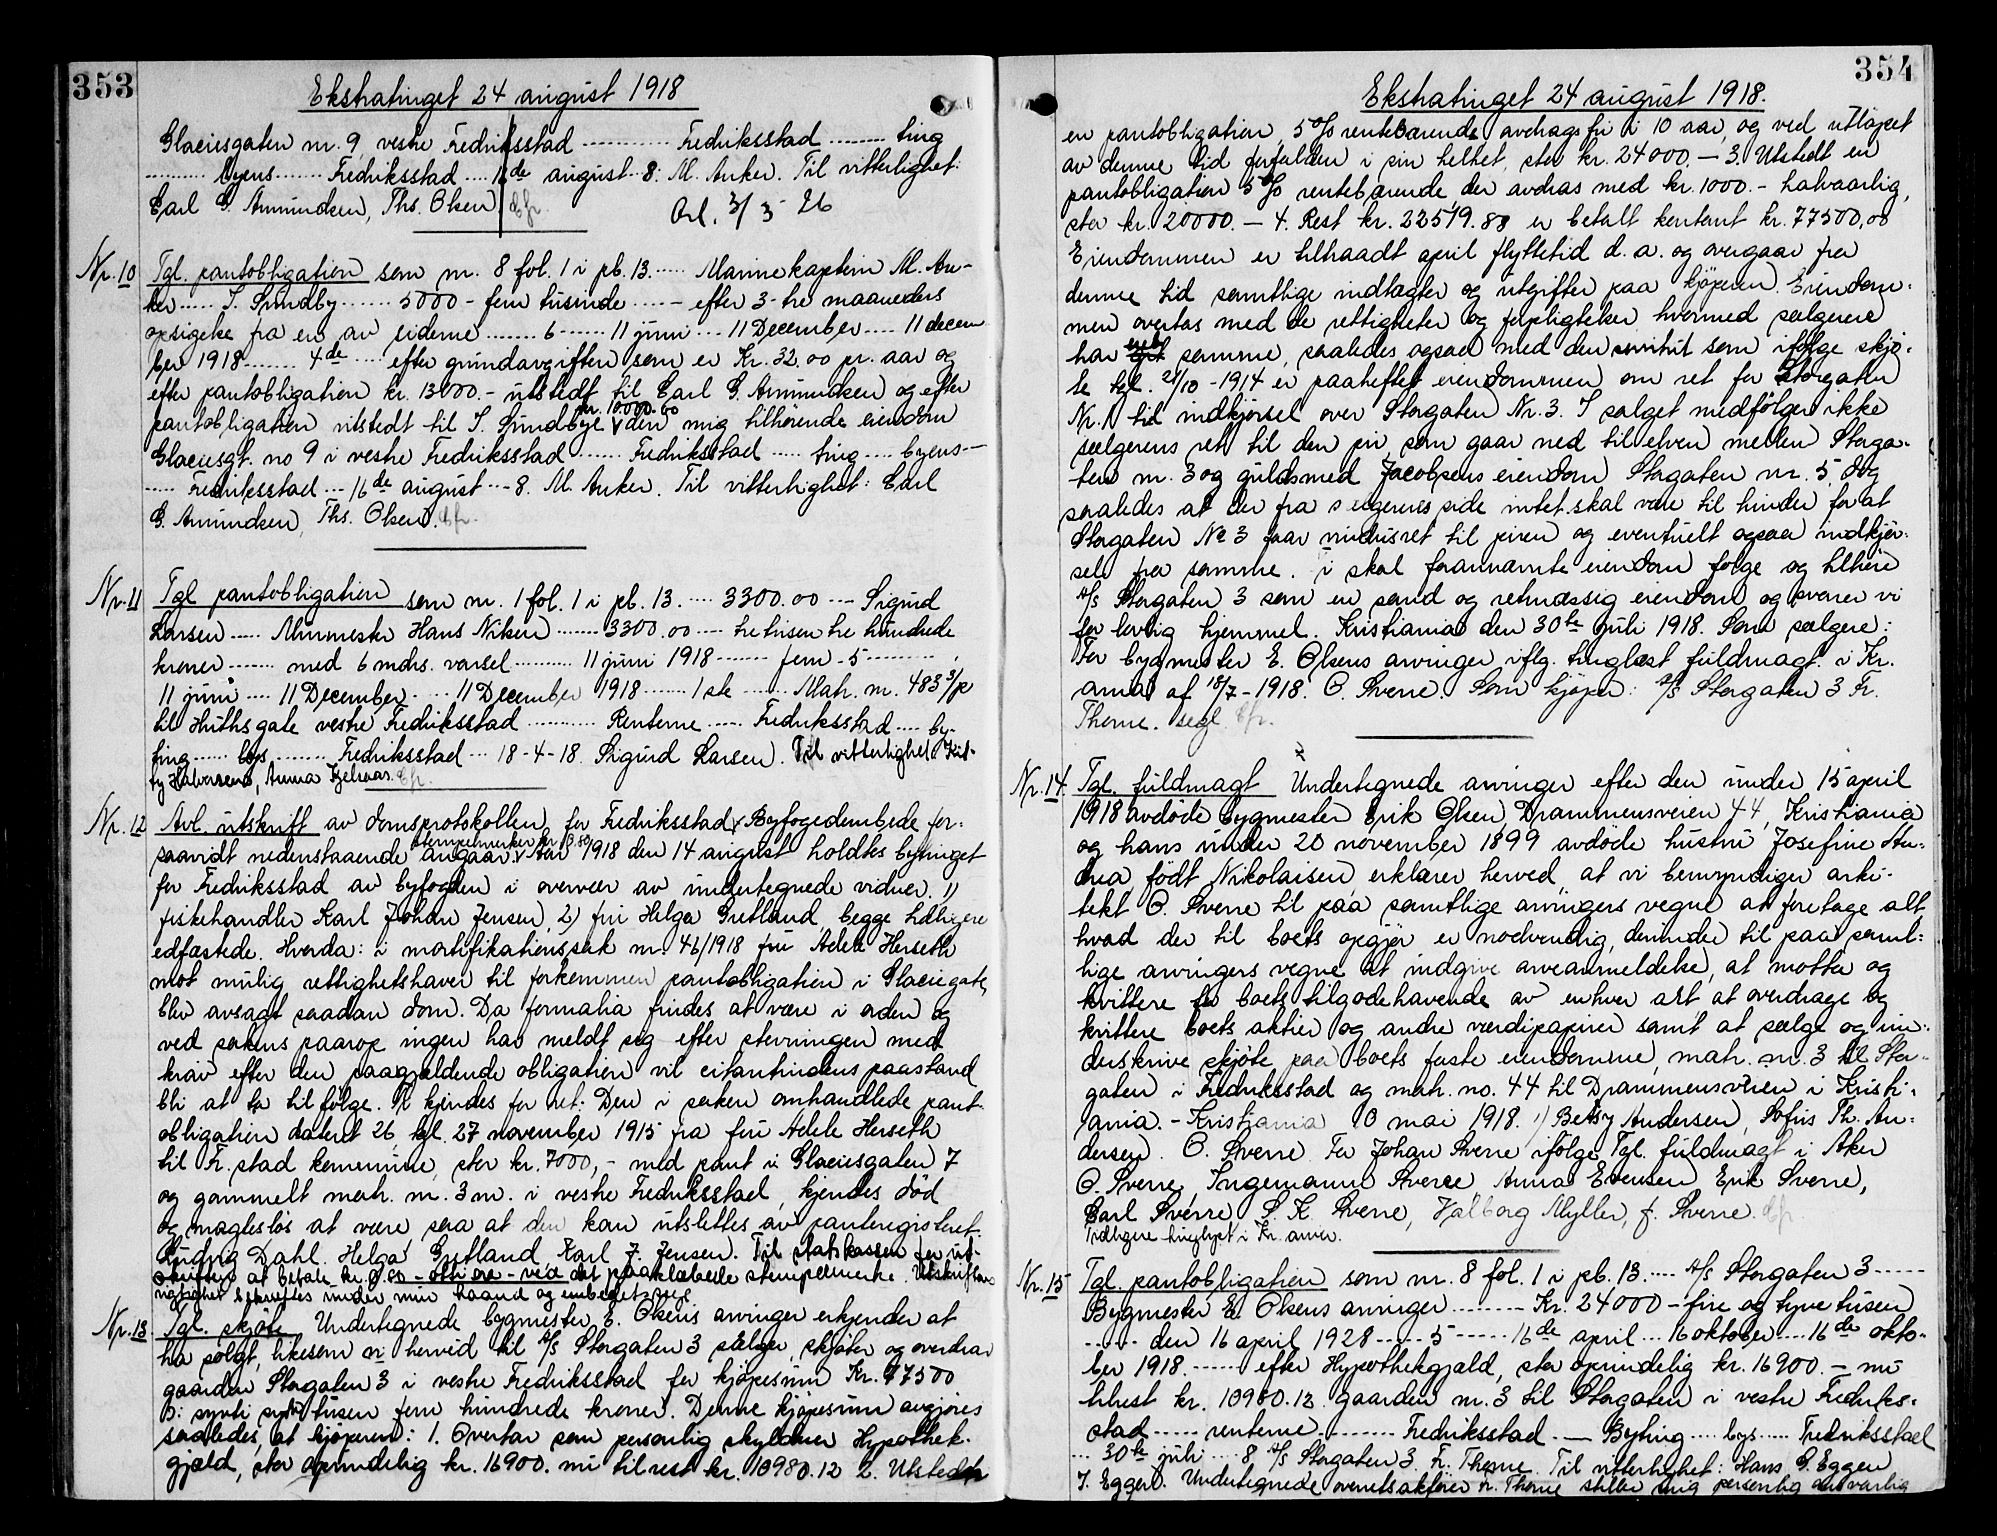 353
Ekstratinget 24 august 1918
Glacisgaten nr. 9, vestre Fredriksstad ........ Fredriksstad ........ ting
........ byens ........ Fredriksstad .... 16de august .. 8. M. Anker. Til vitterlighet:
Carl G. Amundsen, Ths. Olsen. Cfr. Avl. 3/5 26
Nr. 10 Tgl. pantobligation som nr. 8 fol. 1 i pb. 13. ..... Marinekaptein M. An-
ker ..... I. Sundby ...... 5000 - fem tusinde ..... - efter 3 - tre maaneders
opsigelse fra en av siderne ....... 6 ....... 11 juni .... 11 December .... 11 decem
ber 1918 ....... 4de .... efter grundavgiften som er Kr. 32.00 pr. aar og
efter pantobligation kr. 13000.- utstedt til Carl G. Amundsen og efter
pantobligation utstedt til I. Sundbye kr. 10.000.00 den mig tilhörende eiendom
Glacisgt. no 9 i vestre Fredriksstad ....... Fredriksstad ..... ting .... byens -
..... Fredriksstad ... 16de august ... 8. M. Anker. Til vitterlighet: Carl
G. Amundsen, Ths. Olsen. Cfr.
Nr. 11 Tgl pantobligation som nr. 1 fol. 1 i pb. 13. .... 3300.00 ... Sigurd
Larsen ..... Murmester Hans Nilsen ....... 3300.00 .... tre tusen tre hundrede
kroner ....... med 6 mdrs. varsel .......... 11 juni 1918 ....... fem - 5 ..........
11 juni .... 11 December .... 11 December 1918 ....... 1ste ...... Matr. nr. 483 3/p
til Huthsgate vestre Fredriksstad .......... Renterne ..... Fredriksstad .... by-
ting ...... bys ........ Fredriksstad ... 18-4-18. Sigurd Larsen. Til vitterlighet: Kit-
ty Halvorsen, Anna Fjelnaas. Cfr.
Nr. 12 Avl. utskrift av domsprotokollen for Fredriksstad Byfogedembede for:
saavidt nedenstaaende angaar, stempelmerker kr. 0.80 Aar 1918 den 14 august holdtes bytinget
for Fredriksstad av byfogden i overvær av undertegnede vidner. 1)
fiskehandler Karl Johan Jensen, 2) fru Helga Gretland, begge tidligere
edfæstede. Hvorda: i mortifikationssak nr. 46/1918 fru Adele Herseth
mot mulig rettighetshaver til forkommen pantobligation i Glacisgate,
blev avsagt saadan dom. Da formalia findes at være i orden og
ved sakens paarop ingen har meldt sig efter stevningen med
krav efter den paagjældende obligation vil citantindens paastand
bli at ta tilfölge. Ti kjendes for ret: Den i saken omhandlede pant-
obligation datert 26, tgl. 27 november 1915 fra fru Adele Herseth
til Fr.stad kommune, stor kr. 7000,- med pant i Glacisgaten 7
og gammelt matr. nr. 3 m. i vestre Fredriksstad, kjendes död
og magteslös at være, saa at den kan utslettes av panteregisteret.
Ludvig Dahl. Helga Gretland, Karl J. Jensen. Til statskassen for ut-
skriften at betale kr. 0.80 - otti öre - ved det paaklæbede stempelmerke. Utskriftens
rigtighet bekræftes under min haand og embedets segl
Nr. 13 Tgl. skjöte Undertegnede bygmester E. Olsens arvinger erkjender at
ha solgt, likesom vi herved til A/S Storgaten 3 sælger, skjöter og overdrar
gaarden Storgaten 3 i vestre Fredriksstad for kjöpesum Kr. 77500
D: sytti syv tusen fem hundrede kroner. Denne kjöpesum avgjöres
saaledes, at kjöperen: 1. Overtar som personlig skyldner Hypothek-
gjæld, stor oprindelig kr. 16900. nu tilrest kr. 10980.12 2. Utsteder
354
Ekstratinget 24 august 1918.
en pantobligation, 5 o/o rentebærende, avdragsfri i 10 aar, og ved utlöpet
av denne tid forfalden i sin helhet, stor kr. 24000. - 3. Utstedt en
pantobligation 5 o/o rentebærende, der avdras med kr. 1000.- halvaarlig,
stor kr. 20000. - 4. Rest kr. 22519.88 er betalt kontant kr. 77500,00
Eiendommen er tiltraadt april flyttetid d. a. og overgaar fra
denne tid samtlige indtægter og utgifter paa kjöperen. Eiendom-
men overtas med de rettigheter og forpligtelser hvormed sælgerne
har eiet samme, saaledes ogsaa med den servitut som ifölge skjö-
te tgl. 21/10-1914 er paaheftet eiendommen om ret for Storgaten
Nr. 1 til indkjörsel over Storgaten Nr. 3. I salget medfölger ikke
sælgerens ret til den pir som gaar ned til elven mellem Storga-
ten nr. 3 og guldsmed Jacobsens eiendom Storgaten nr. 5, dog
saaledes at der fra sælgerens side intet skal være til hinder for at
Storgaten No 3 faar vindusret til piren og eventuelt ogsaa indkjör-
sel fra samme. Ti skal forannævnte eiendom fölge og tilhöre
A/S Storgaten 3 som en sand og retmæssig eiendom og svarer vi
for lovlig hjemmel. Kristiania den 30te juli 1918. Som sælgere:
For bygmester E. Olsens arvinger iflg. tinglæst fuldmagt i Kr.
ania af 18/7-1918. O. Sverre. Som kjöper: A/S Storgaten 3 Fr.
Thorne. segl. Cfr.
Nr. 14 Tgl. fuldmagt Undertegnede arvinger efter den under 15 april
1918 avdöde bygmester Erik Olsen, Drammensveien 44, Kristiania
og hans under 20 november 1899 avdöde hustru Josefine An-
drea född Nikolaisen, erklærer herved, at vi bemyndiger arki-
tekt O. Sverre til paa samtlige arvingers vegne at foretage alt
hvad der til boets opgjör er nødvendig, derunder til paa samt-
lige arvingers vegne at indgive arveanmeldelse, at motta og
kvittere for boets tilgodehavende av enhver art at overdrage og
kvittere boets aktier og andre værdipapirer samt at sælge og un-
derskrive skjöte paa boets faste eiendomme, matr. nr. 3 til Stor-
gaten i Fredriksstad og matr. no. 44 til Drammensveien i Kristi-
ania. - Kristiania 10 mai 1918. 1) Betsy Andersen, Sofus Th. An-
dersen. O. Sverre For Johan Sverre ifölge Tgl. fuldmagt i Aker
O. Sverre, Ingemann Sverre Anna Evensen Erik Sverre,
Carl Sverre, S. K. Sverre, Valborg Myller, f. Sverre. Cfr
Tidligere tinglyst i Kr.ania.
Nr. 15 Tgl. pantobligation som nr. 8 fol. 1 i pb. 13. .... A/S Storgaten 3 .....
Bygmester E. Olsens arvinger ........ Kr. 24000 - fire og tyve tusen
..... den 16 april 1928 ..... 5 ...... 16de april ... 16 oktober .... 16de okto-
ber 1918 ...... efter Hypothekgjæld, stor oprindelig kr. 16900. - nu
tilrest kr. 10980.12. gaarden nr. 3 til Storgaten i vestre Fredriks-
stad ..... renterne ........ Fredriksstad .. - Byting .... bys ..... Fredriksstad
... 30te juli ... 8 A/S Storgaten 3. Fr. Thorne. Til vitterlighet: Hans G. Eggen
J. Eggen. Undertegnede overretssakförer Fr. Thorne stiller mig personlig ansvarlig